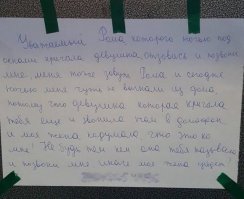 Уважаемый Рома которого ночью под
окнами кричала девушка, отзовись и позвони
мне меня тоже зовут Рома и сегодня
ночью меня чуть не выгнали из дома
потому что девушка которая кричала
тебя ещё и звонила нам в домофон
и моя жена подумала что это ко
мне! Не будь тем кем она тебя называла
и позвони мне иначе моя жена